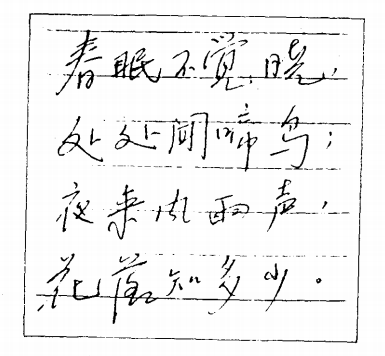 春眠不觉晓，
处处闻啼鸟；
夜来风雨声，
花落知多少。